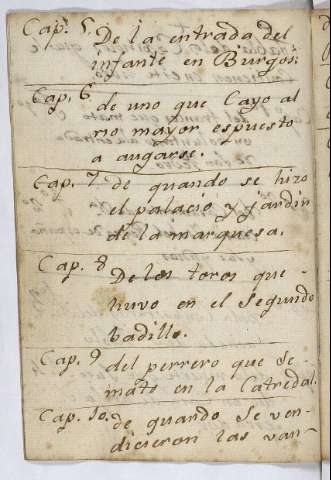 Cap. 5. De la entrada del
infante en Burgos.
Cap. 6. de uno que Cayo al
rio mayor espuesto
a augarse.
Cap. 7 de quando se hizo
el palacio y jardin
de la marquesa.
Cap. 8 De los toros que
huvo en el segundo
badillo.
Cap. 9 del perrero que se
mato en la Catredal.
Cap. 10. de quando se ven-
dicieron las van-